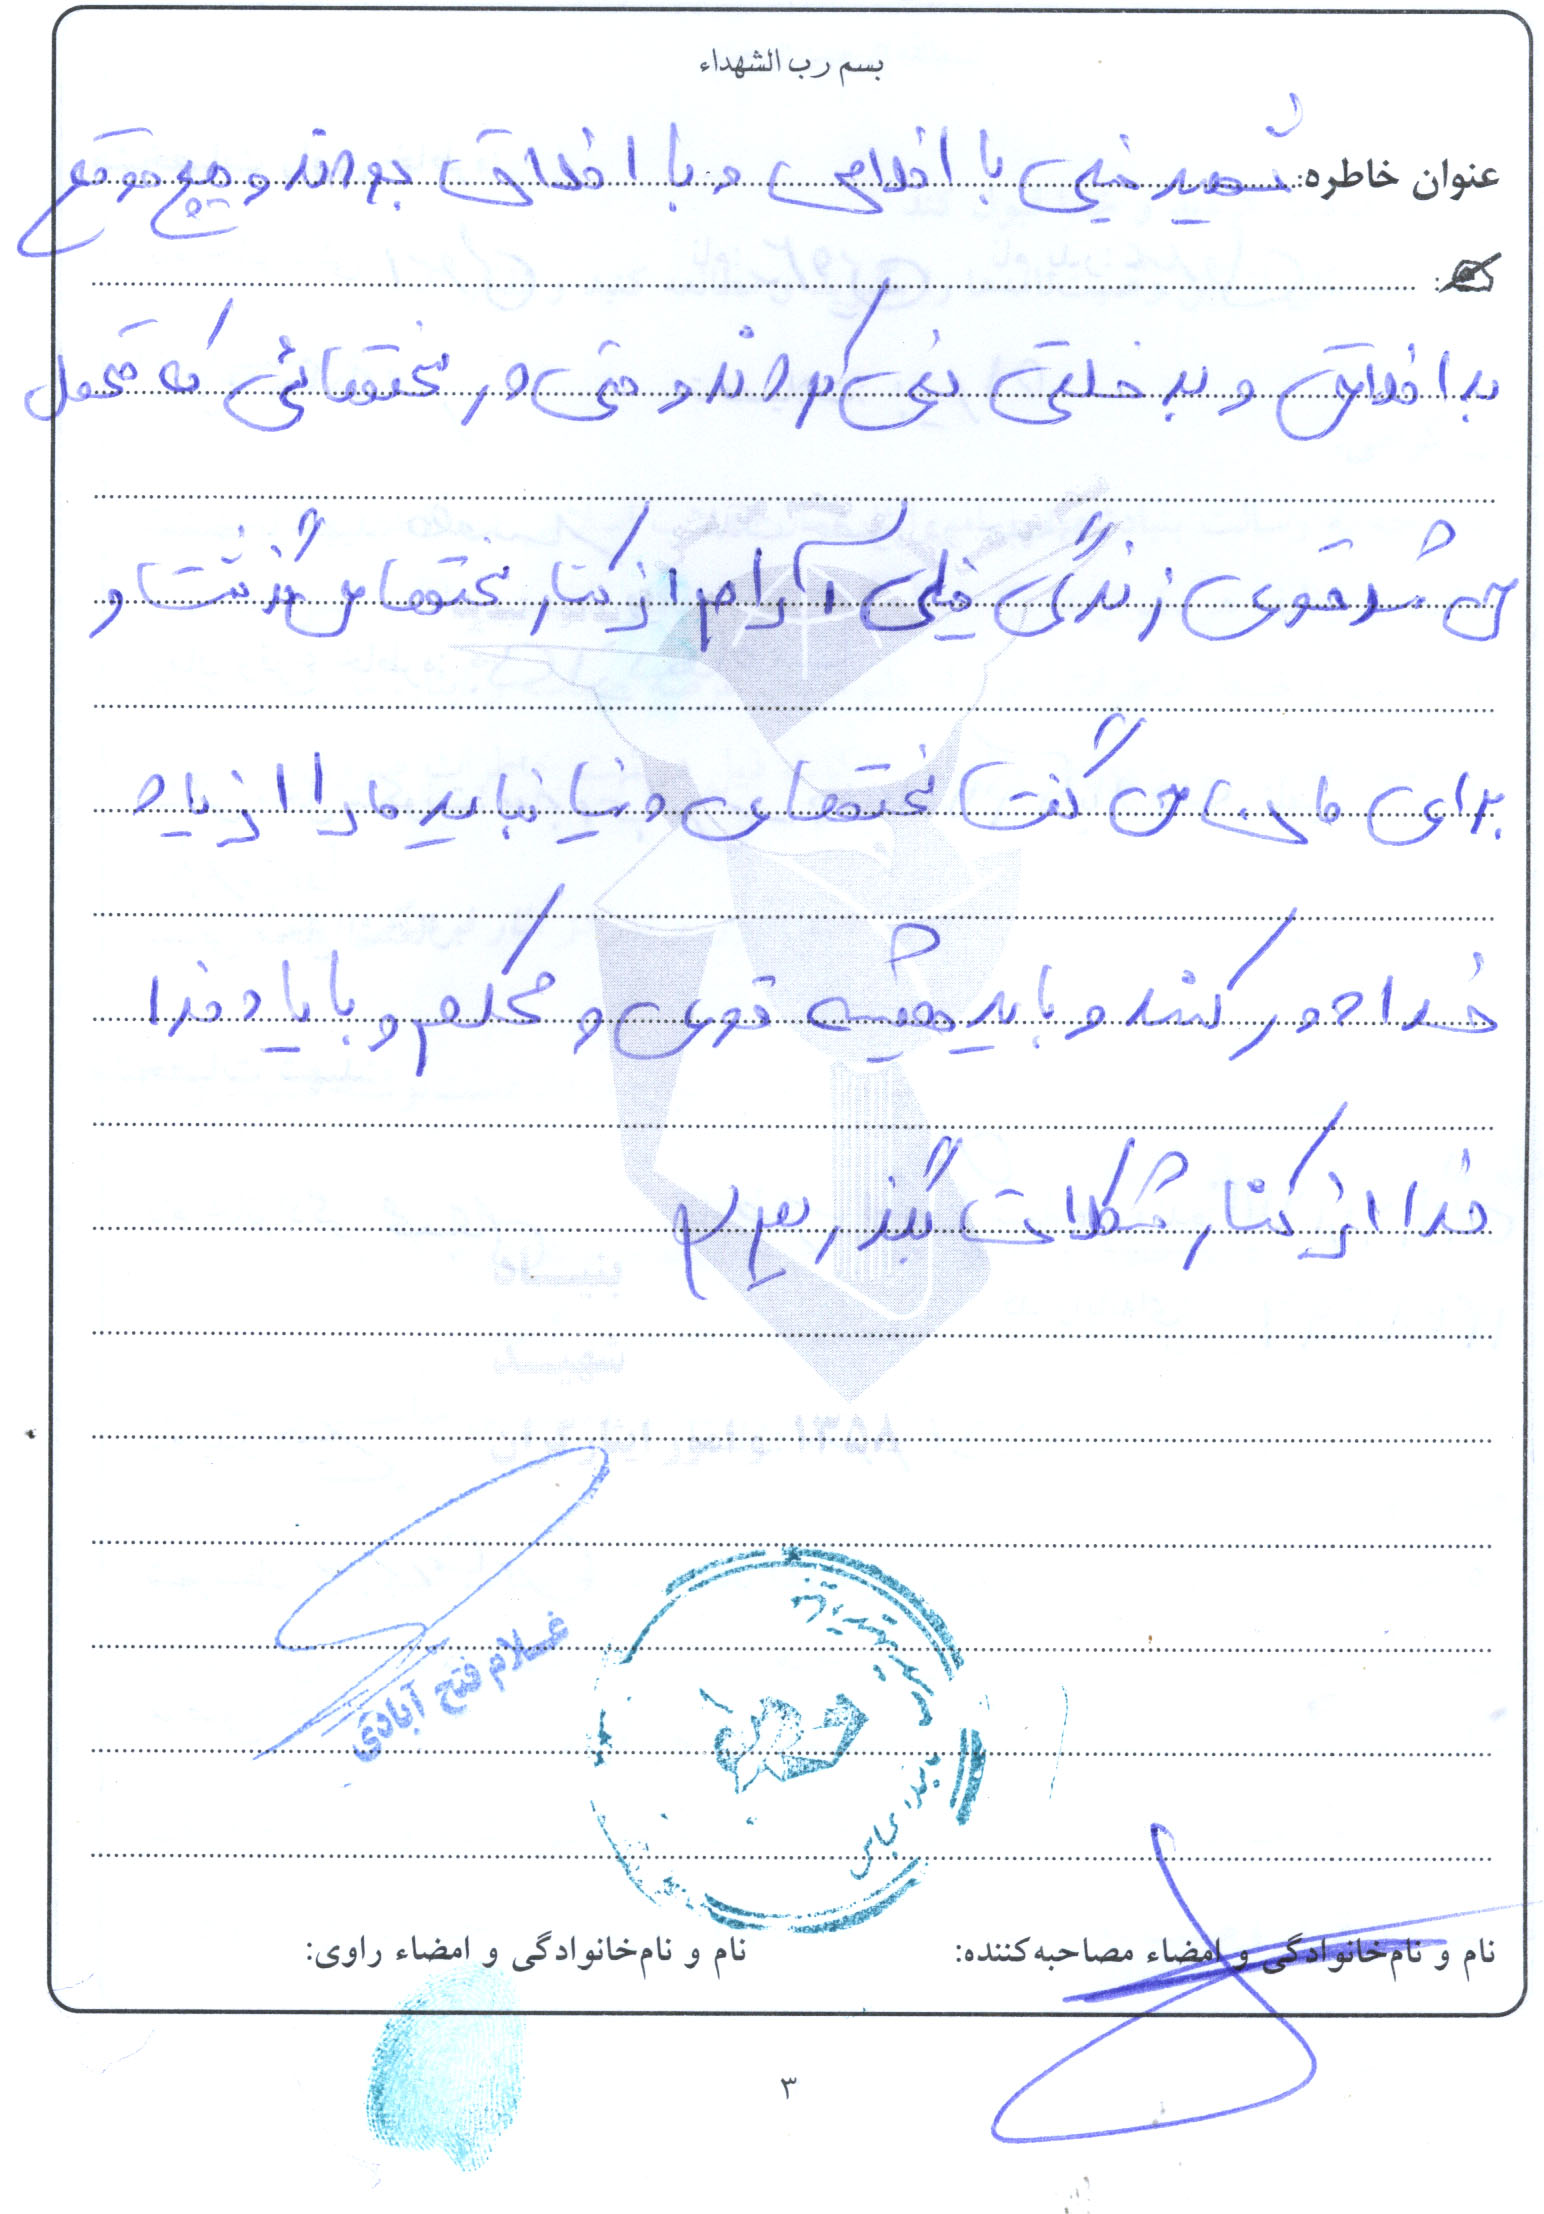 بسم رب الشهداء
عنوان خاطره: شهید خیلی با اخلاص و با اخلاق بودند و هیچ موقع
بد اخلاق و بد خلقی نمی کردند و حتی در سختیهائی که متحمل
می شد توی زندگی خیلی آرام از کنار سختیهای می گذشت و
برای ما می گفت سختیهای دنیا نباید ما را از یاد
خدا دور کند و باید همیشه قوی و محکم و با یاد خدا
خدا از کنار مشکلات بگذریم
غلام فتح آبادی
نام و نام‌خانوادگی و امضاء مصاحبه‌کننده:
نام و نام‌خانوادگی و امضاء راوی:
۳